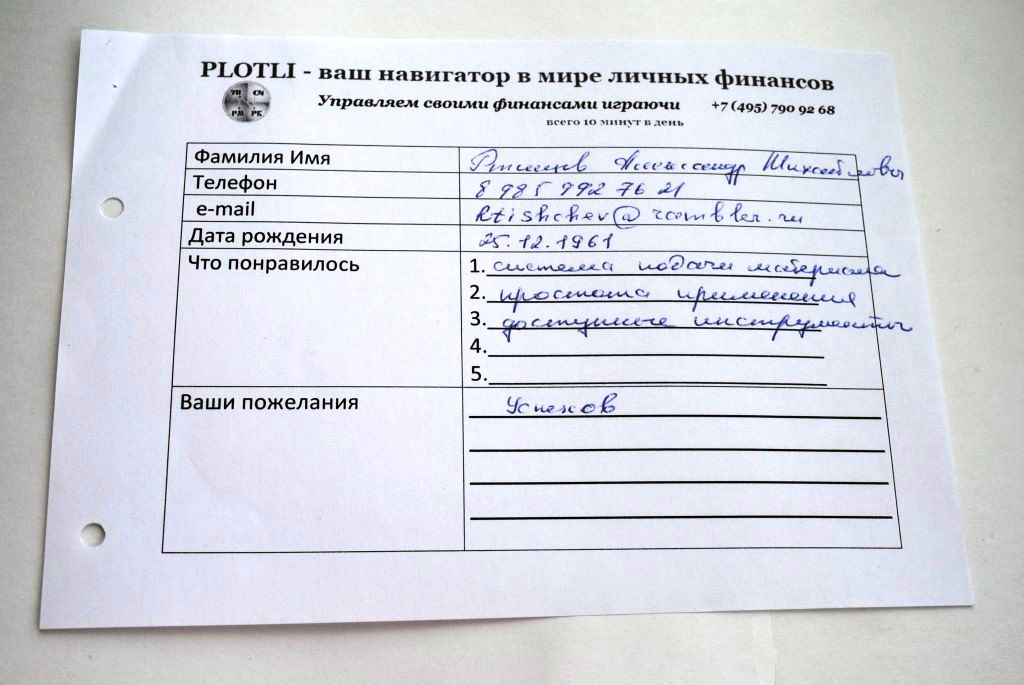 PLOTLI - ваш навигатор в мире личных финансов
УП СЧ
РМ РК
Управляем своими финансами играючи +7 (495) 790 92 68
всего 10 минут в день
Фамилия Имя Ртищев Александр Михайлович
Телефон 8 985 992 76 21
e-mail Rtishchev@rambler.ru
Дата рождения 25.12.1961
Что понравилось 1. система подачи материала
2. простота применения
3. доступные инструменты
4.
5.
Ваши пожелания Успехов